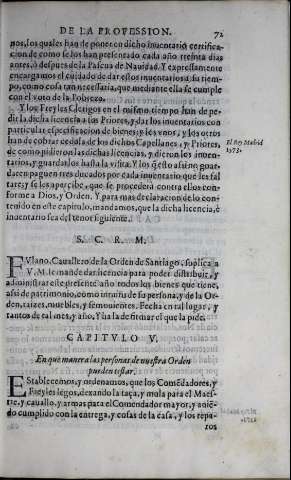 DE LA PROFESSION. 72
nos, los quales han de poner en dicho inuentario certifica-
cion de como se los han presentado cada año treinta dias
antes, ò despues de la Pascua de Nauidad. Y expressamente
encargamos el cuidado de dar estos inuentarios à su tiem-
po, como cosa tan necessaria, que mediante ella se cumple
con el voto de la Pobreza.
Y los Freyles Clerigos en el mismo tiempo han de pe-
dir la dicha licencia à sus Priores, y dar los inuentarios con
particular especificacion de bienes, y les vnos, y los otros
han de cobrar cedula de los dichos Capellanes, y Priores,
de como pidieron las dichas licencias, y dieron los inuen-
tarios, y guardarlos hasta la visita. Y los que assi no guar-
daren paguen tres ducados por cada inuentario que les fal
tare; y se les apercibe, que se procederà contra ellos con-
forme à Dios, y Orden. Y para mas declaracion de lo con-
tenido en este capitulo, mandamos, que la dicha licencia, è
inuentario sea del tenor siguiente.
El Rey Madrid
1573.
S. C. R. M.
FVlano, Cauallero de la Orden de Santiago, suplica a
V. M. le mande dar licencia para poder distribuir, y
administrar este presente año todos los bienes que tiene,
assi de patrimonio, como intuitu de su persona, y de la Or-
den, raizes, muebles, y semouientes. Fecha en tal lugar, y
tantos de tal mes, y año. Y ha la de firmar el que la pide.
CAPITVLO V.
En què manera las personas de nuestra Orden
pueden testar.
EStablecemos, y ordenamos, que los Comẽdadores, y
Freyles legos, dexando la taça, y mula para el Maes-
tre, y cauallo, y armas para el Comendador mayor, y auiẽ-
do cumplido con la entrega, y cosas de la casa, y los repa-
ros